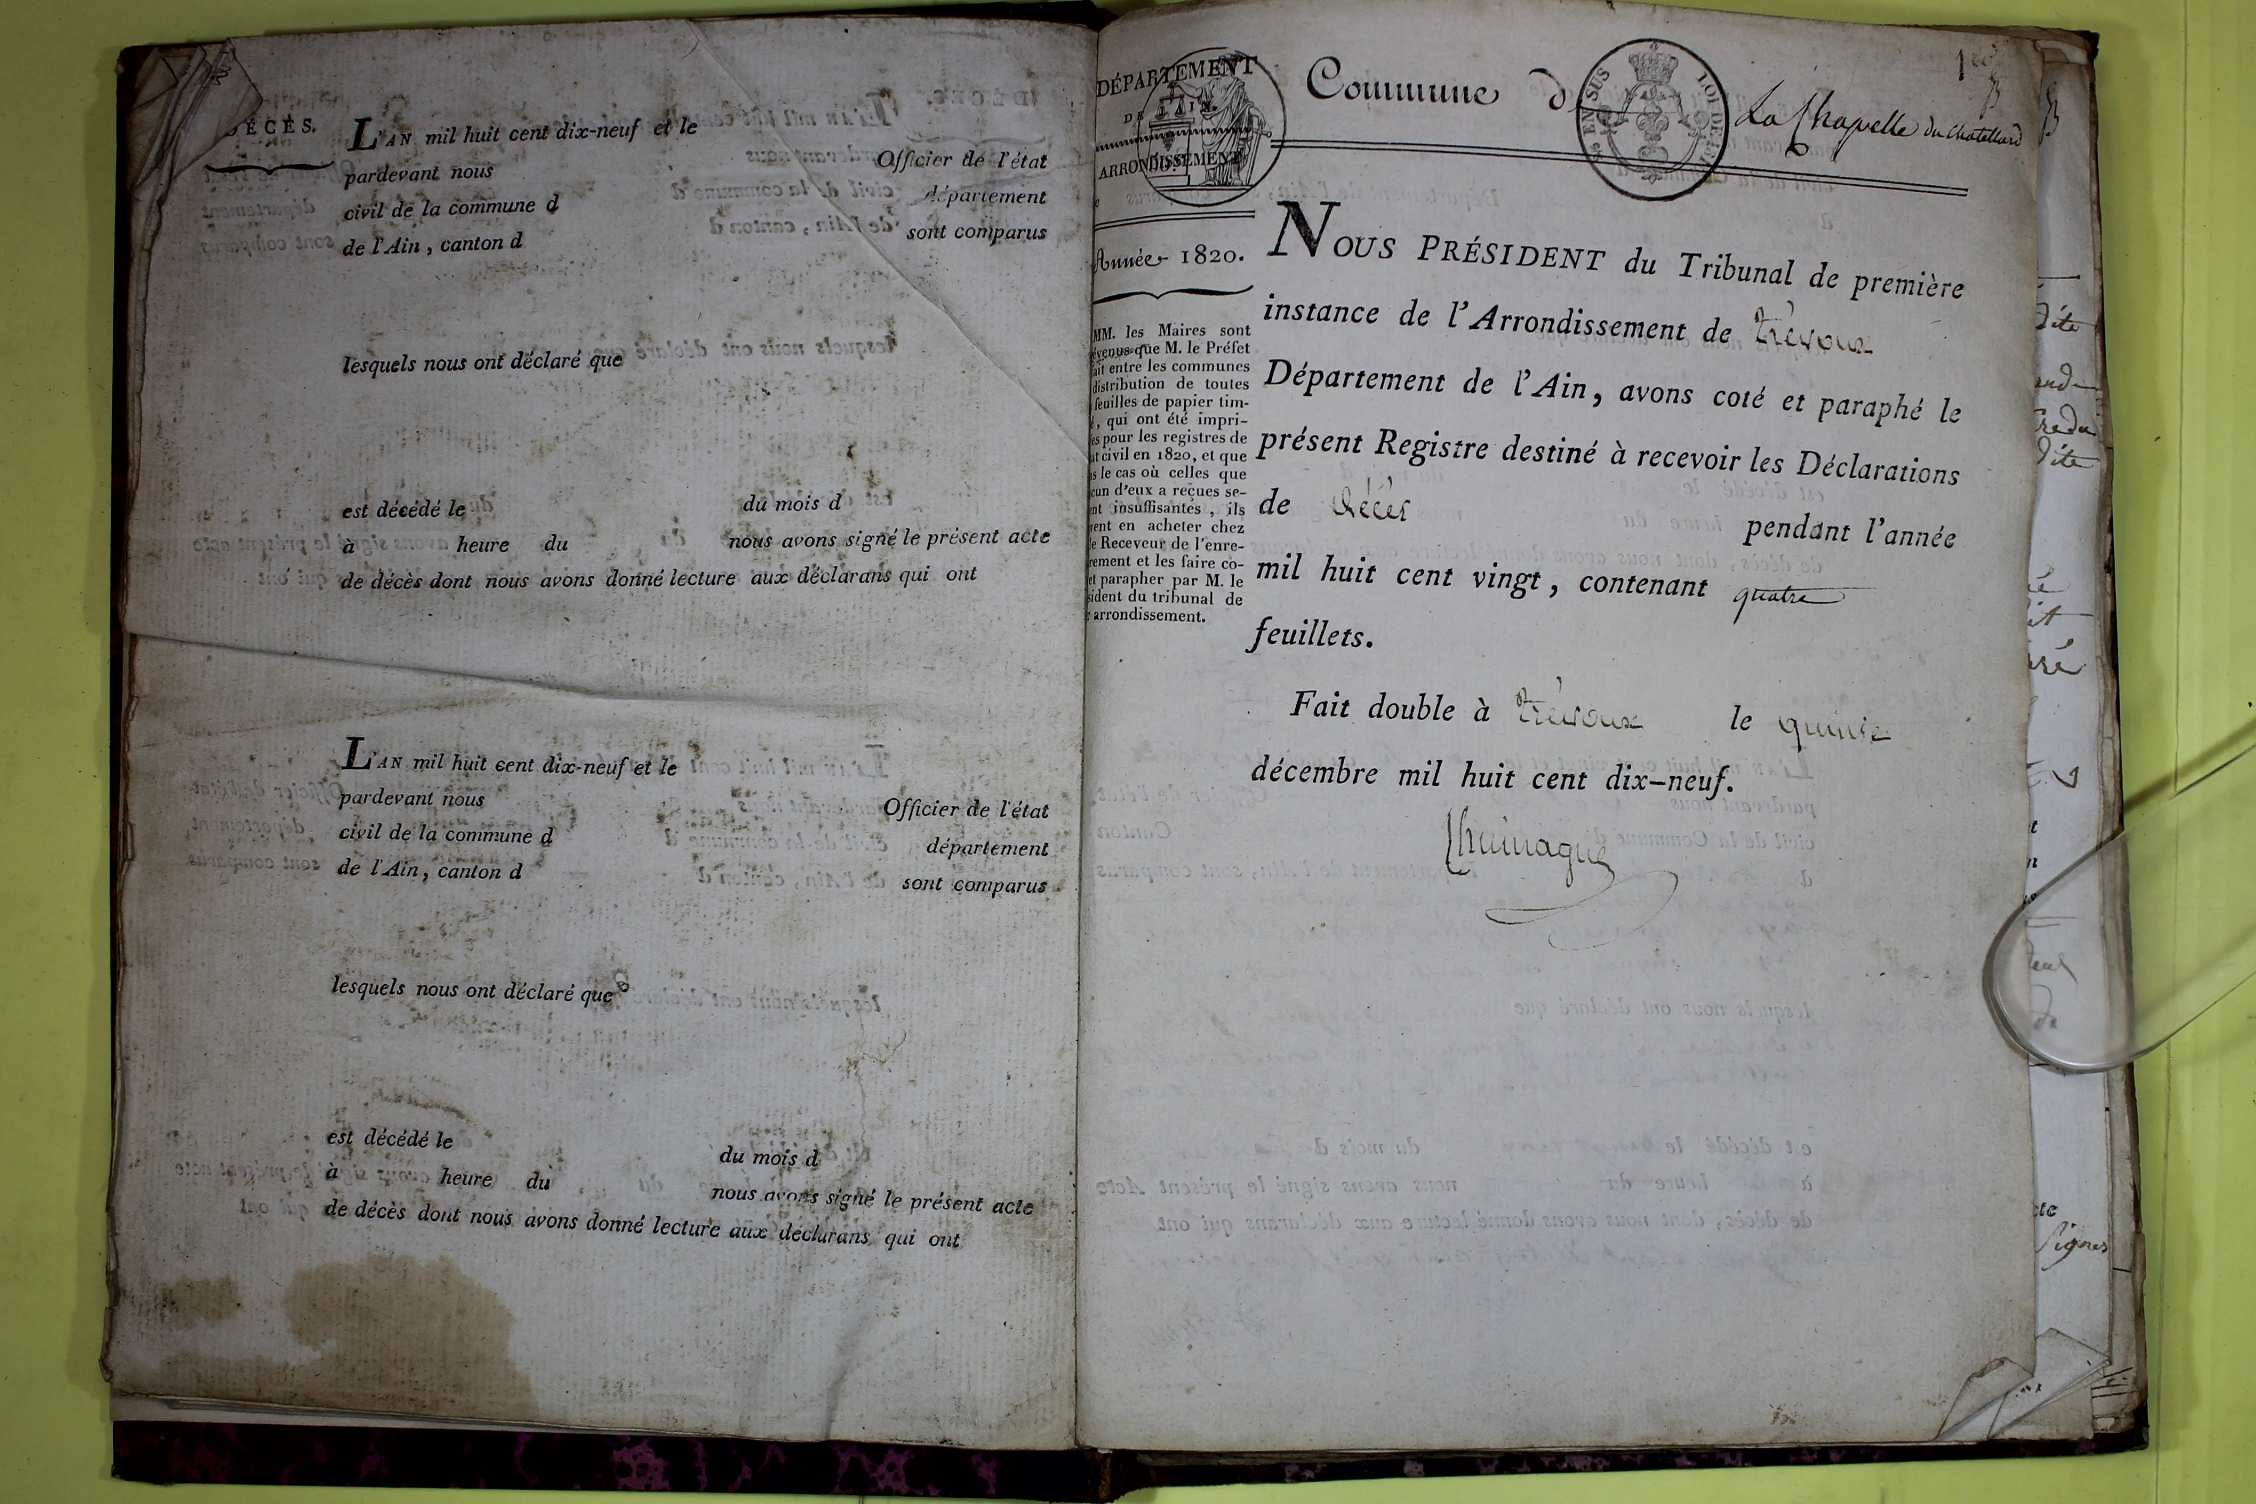 DÉCÈS.
L'AN mil huit cent dix-neuf et le
pardevant nous Officier de l'état
civil de la commune d département
de l'Ain, canton d sont comparus
lesquels nous ont déclaré que
est décédé le du mois d
à heure du nous avons signé le présent acte
de décès dont nous avons donné lecture aux déclarans qui ont
L'AN mil huit cent dix-neuf et le
pardevant nous Officier de l'état
civil de la commune d département
de l'Ain, canton d sont comparus
lesquels nous ont déclaré que
est décédé le du mois d
à heure du nous avons signé le présent acte
de décès dont nous avons donné lecture aux déclarans qui ont
DÉPARTEMENT
DE L'AIN.
ARRONDISSEMENT
Année 1820.
MM. les Maires sont
évenus que M. le Préfet
ait entre les communes
distribution de toutes
feuilles de papier tim-
, qui ont été impri-
es pour les registres de
at civil en 1820, et que
s le cas où celles que
cun d'eux a reçues se-
nt insuffisantes, ils
vent en acheter chez
e Receveur de l'enre-
rement et les faire co-
et parapher par M. le
sident du tribunal de
arrondissement.
Commune d La Chapelle du Chatellard
EN SUS
LOI DE 1817
NOUS PRÉSIDENT du Tribunal de première
instance de l'Arrondissement de trévoux
Département de l'Ain, avons coté et paraphé le
présent Registre destiné à recevoir les Déclarations
de décès pendant l'année
mil huit cent vingt, contenant quatre
feuillets.
Fait double à trévoux le quinze
décembre mil huit cent dix-neuf.